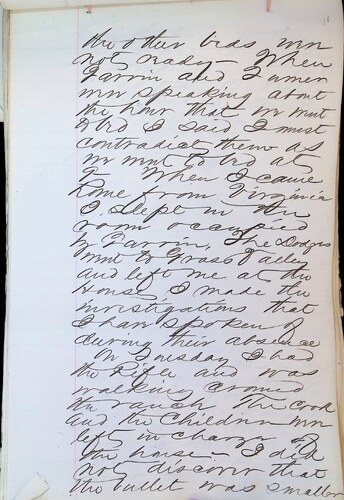 the other beds were
not ready - When
Tarvin and Turner
were speaking about
the hour that we went
to bed I said I must
contradict them as
we went to bed at
7. When I came
home from Virginia
I slept in the
room occupied
by Tarvin, The Lodges
went to Grass Valley
and left me at the
House I made the
investigations that
I have spoken of
during their absence
On Tuesday I had
the Rifle and was
walking around
the ranch The cook
and the Children were
left in charge of
the house - I did
not discover that
the bullet was smaller